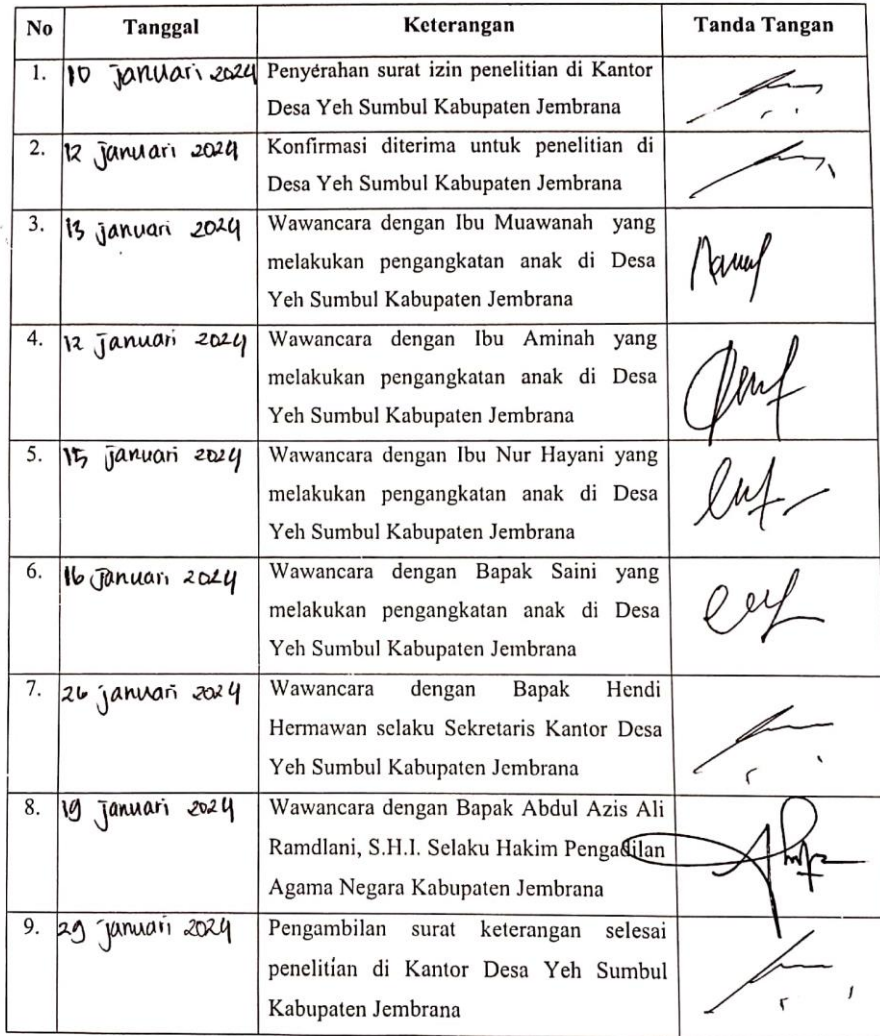 No Tanggal Keterangan Tanda Tangan
1. 10 Januari 2024 Penyerahan surat izin penelitian di Kantor
Desa Yeh Sumbul Kabupaten Jembrana
2. 12 Januari 2024 Konfirmasi diterima untuk penelitian di
Desa Yeh Sumbul Kabupaten Jembrana
3. 13 Januari 2024 Wawancara dengan Ibu Muawanah yang
melakukan pengangkatan anak di Desa
Yeh Sumbul Kabupaten Jembrana
4. 12 Januari 2024 Wawancara dengan Ibu Aminah yang
melakukan pengangkatan anak di Desa
Yeh Sumbul Kabupaten Jembrana
5. 15 Januari 2024 Wawancara dengan Ibu Nur Hayani yang
melakukan pengangkatan anak di Desa
Yeh Sumbul Kabupaten Jembrana
6. 16 Januari 2024 Wawancara dengan Bapak Saini yang
melakukan pengangkatan anak di Desa
Yeh Sumbul Kabupaten Jembrana
7. 26 Januari 2024 Wawancara dengan Bapak Hendi
Hermawan selaku Sekretaris Kantor Desa
Yeh Sumbul Kabupaten Jembrana
8. 19 Januari 2024 Wawancara dengan Bapak Abdul Azis Ali
Ramdlani, S.H.I. Selaku Hakim Pengadilan
Agama Negara Kabupaten Jembrana
9. 29 Januari 2024 Pengambilan surat keterangan selesai
penelitian di Kantor Desa Yeh Sumbul
Kabupaten Jembrana